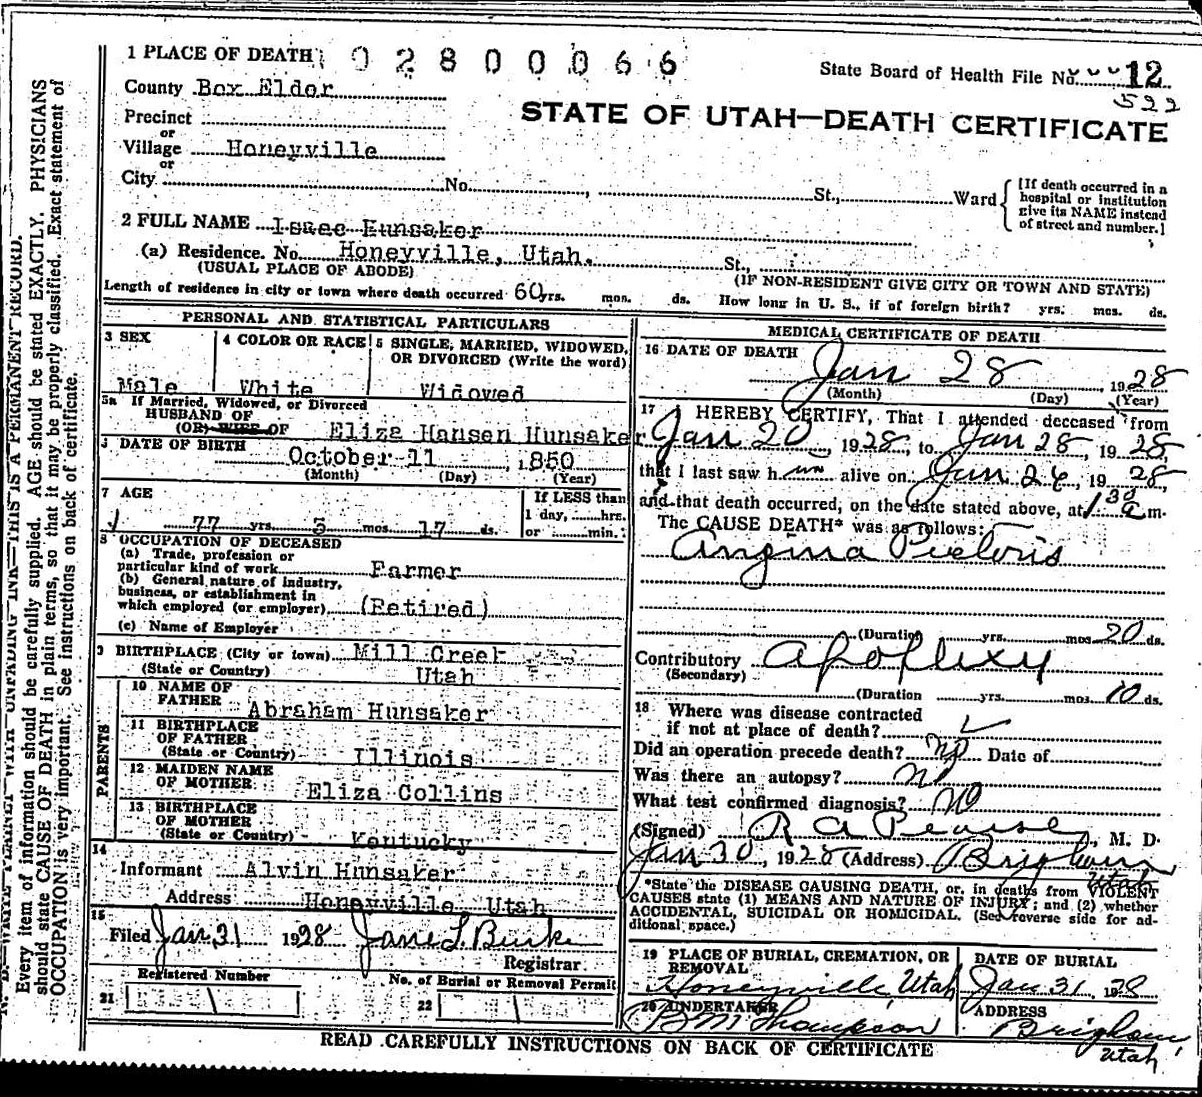 1 PLACE OF DEATH 02800066
State Board of Health File No. 12
522
County Box Elder
STATE OF UTAH—DEATH CERTIFICATE
Precinct
or
Village Honeyville
or
City No. , St., Ward
[If death occurred in a
hospital or institution
give its NAME instead
of street and number.]
2 FULL NAME Isaac Hunsaker
(a) Residence. No. Honeyville, Utah. St.,
(USUAL PLACE OF ABODE) (IF NON-RESIDENT GIVE CITY OR TOWN AND STATE)
Length of residence in city or town where death occurred 60 yrs. mos. ds. How long in U. S., if of foreign birth? yrs. mos. ds.
PERSONAL AND STATISTICAL PARTICULARS
3 SEX
Male
4 COLOR OR RACE
White
5 SINGLE, MARRIED, WIDOWED,
OR DIVORCED (Write the word)
Widowed
5a If Married, Widowed, or Divorced
HUSBAND OF
(OR) WIFE OF Eliza Hansen Hunsaker
DATE OF BIRTH October 11 , 1850
(Month) (Day) (Year)
7 AGE
77 yrs. 3 mos. 17 ds.
If LESS than
1 day, hrs.
or min.
8 OCCUPATION OF DECEASED
(a) Trade, profession or
particular kind of work Farmer
(b) General nature of industry,
business, or establishment in
which employed (or employer) (Retired)
(c) Name of Employer
9 BIRTHPLACE (City or town) Mill Creek
(State or Country) Utah
PARENTS
10 NAME OF
FATHER Abraham Hunsaker
11 BIRTHPLACE
OF FATHER
(State or Country) Illinois
12 MAIDEN NAME
OF MOTHER Eliza Collins
13 BIRTHPLACE
OF MOTHER
(State or Country) Kentucky
14
Informant Alvin Hunsaker
Address Honeyville Utah
15
Filed Jan 31 1928 Jane L. Burke
Registrar
Registered Number No. of Burial or Removal Permit
21 22
MEDICAL CERTIFICATE OF DEATH
16 DATE OF DEATH
Jan 28 , 1928
(Month) (Day) (Year)
17 I HEREBY CERTIFY, That I attended deceased from
Jan 20 , 1928, to Jan 28, 1928,
that I last saw him alive on Jan 26, 1928,
and that death occurred, on the date stated above, at 1:30 a m.
The CAUSE DEATH* was as follows:
Angina Pectoris
(Duration yrs. mos. 20 ds.
Contributory Apoplexy
(Secondary)
(Duration yrs. mos. 10 ds.
18 Where was disease contracted
if not at place of death?
Did an operation precede death? No Date of
Was there an autopsy? No
What test confirmed diagnosis? No
(Signed) R A Pearse , M. D.
Jan 30, 1928 (Address) Brigham
Utah
*State the DISEASE CAUSING DEATH, or, in deaths from VIOLENT
CAUSES state (1) MEANS AND NATURE OF INJURY; and (2) whether
ACCIDENTAL, SUICIDAL OR HOMICIDAL. (See reverse side for ad-
ditional space.)
19 PLACE OF BURIAL, CREMATION, OR
REMOVAL
Honeyville, Utah
DATE OF BURIAL
Jan 31, 1928
20 UNDERTAKER
B M Thompson
ADDRESS
Brigham,
Utah
READ CAREFULLY INSTRUCTIONS ON BACK OF CERTIFICATE
N. B.—WRITE PLAINLY WITH UNFADING INK—THIS IS A PERMANENT RECORD.
Every item of information should be carefully supplied. AGE should be stated EXACTLY. PHYSICIANS
should state CAUSE OF DEATH in plain terms, so that it may be properly classified. Exact statement of
OCCUPATION is very important. See instructions on back of certificate.